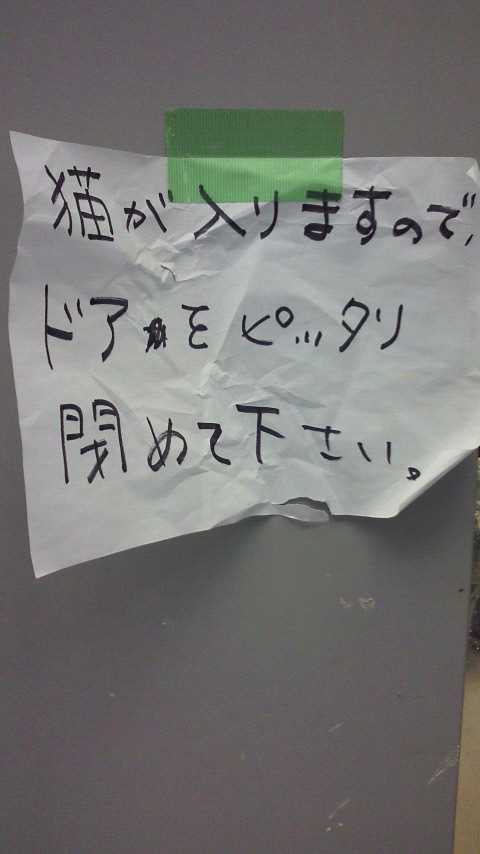 猫が入りますので、
ドアをピッタリ
閉めて下さい。